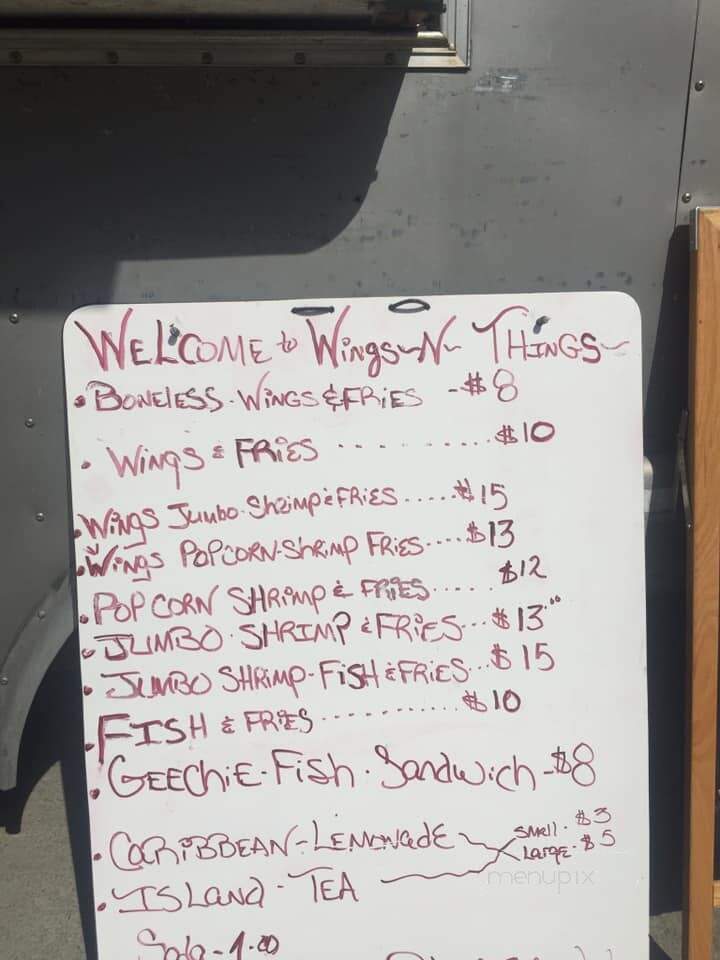 WELCOME to WINGS~N~ THINGS~
• BONELESS - WINGS & FRIES - $8
• WINGS & FRIES ........... $10
• WINGS JUMBO-SHRIMP & FRIES ..... $15
• WINGS POPCORN-SHRIMP FRIES ..... $13
• POPCORN SHRIMP & FRIES ..... $12
• JUMBO SHRIMP & FRIES ... $13
• JUMBO SHRIMP-FISH & FRIES ... $15
• FISH & FRIES ........... $10
• GEECHIE-FISH - SANDWICH - $8
• CARIBBEAN-LEMONADE
SMALL - $3
LARGE - $5
• ISLAND - TEA
menupix
Soda - 1.00